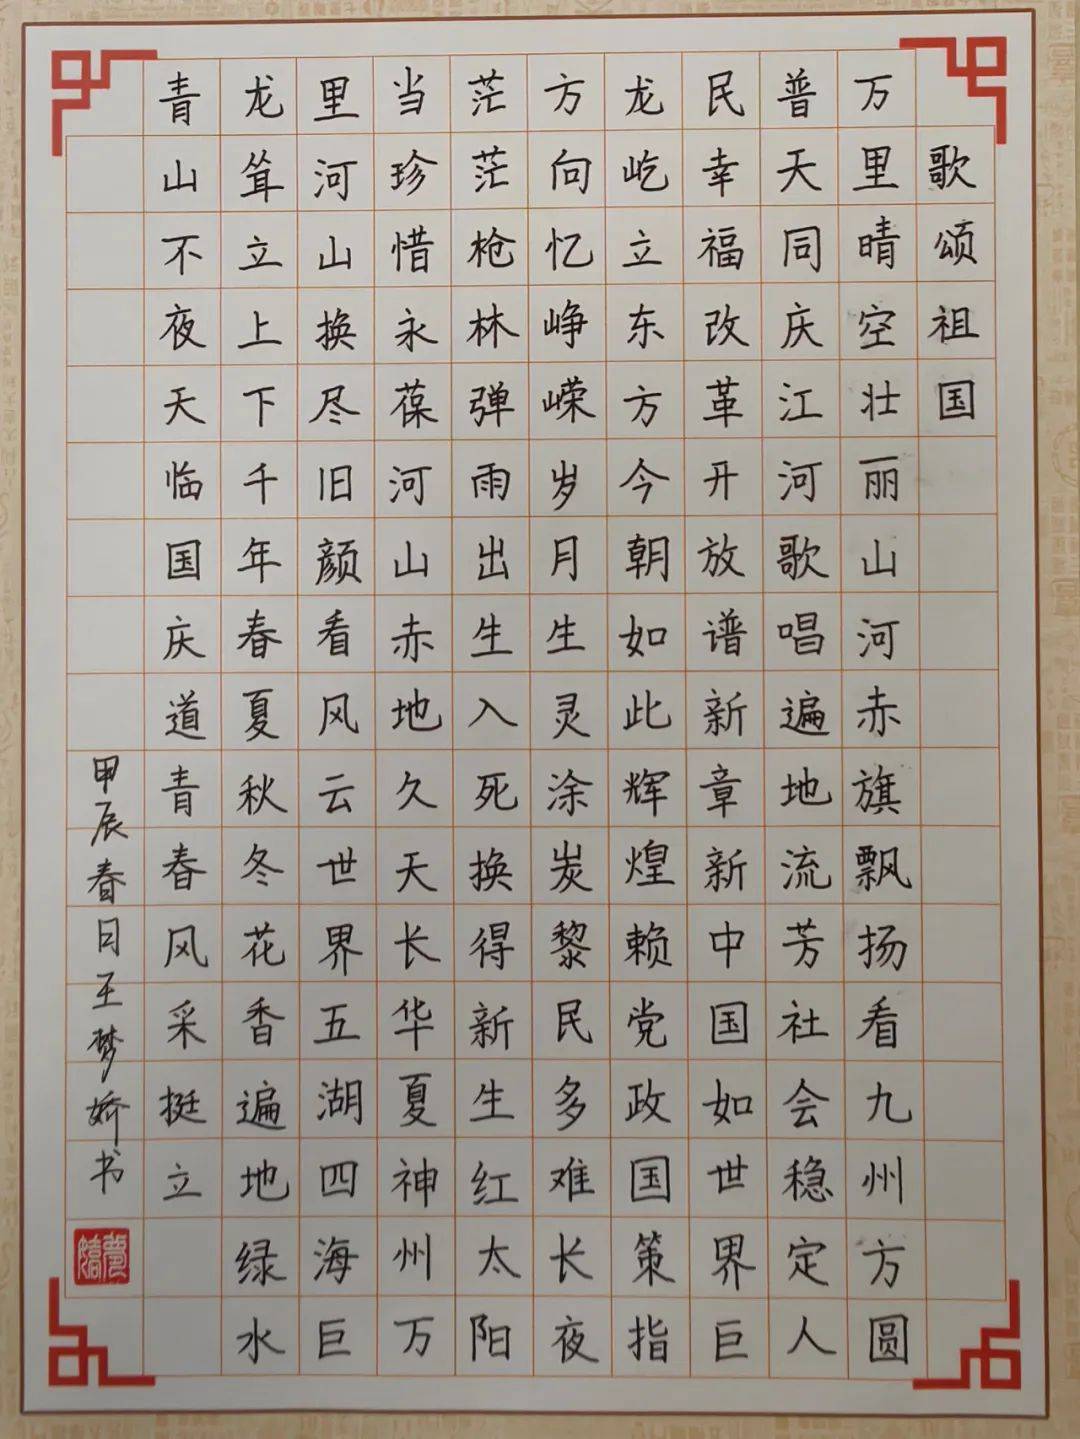 歌颂祖国
万里晴空壮丽山河赤旗飘扬看九州方圆
普天同庆江河歌唱遍地流芳社会稳定人
民幸福改革开放谱新章新中国如世界巨
龙屹立东方今朝如此辉煌赖党政国策指
方向忆峥嵘岁月生灵涂炭黎民多难长夜
茫茫枪林弹雨出生入死换得新生红太阳
当珍惜永葆河山赤地久天长华夏神州万
里河山换尽旧颜看风云世界五湖四海巨
龙耸立上下千年春夏秋冬花香遍地绿水
青山不夜天临国庆道青春风采挺立
甲辰春日王梦娇书